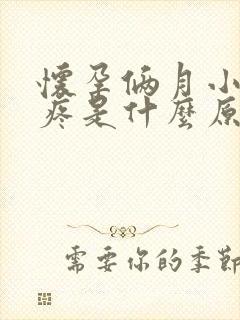 懷孕倆月小
疼是什麼原
需要你的季節